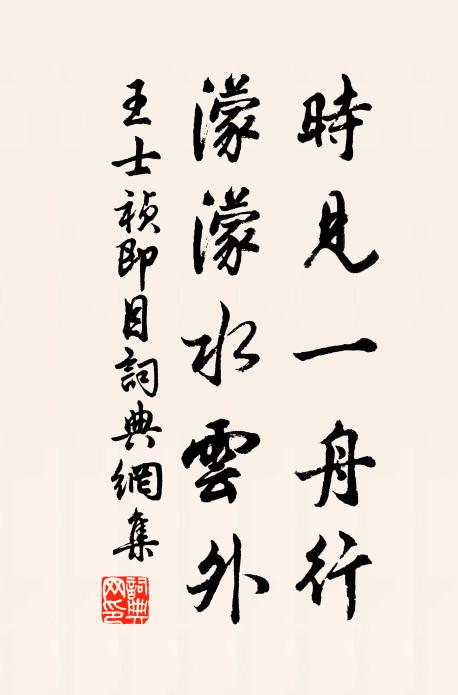 時見一舟行
濛濛水雲外
王士禎即目詞典網集
詞典網印